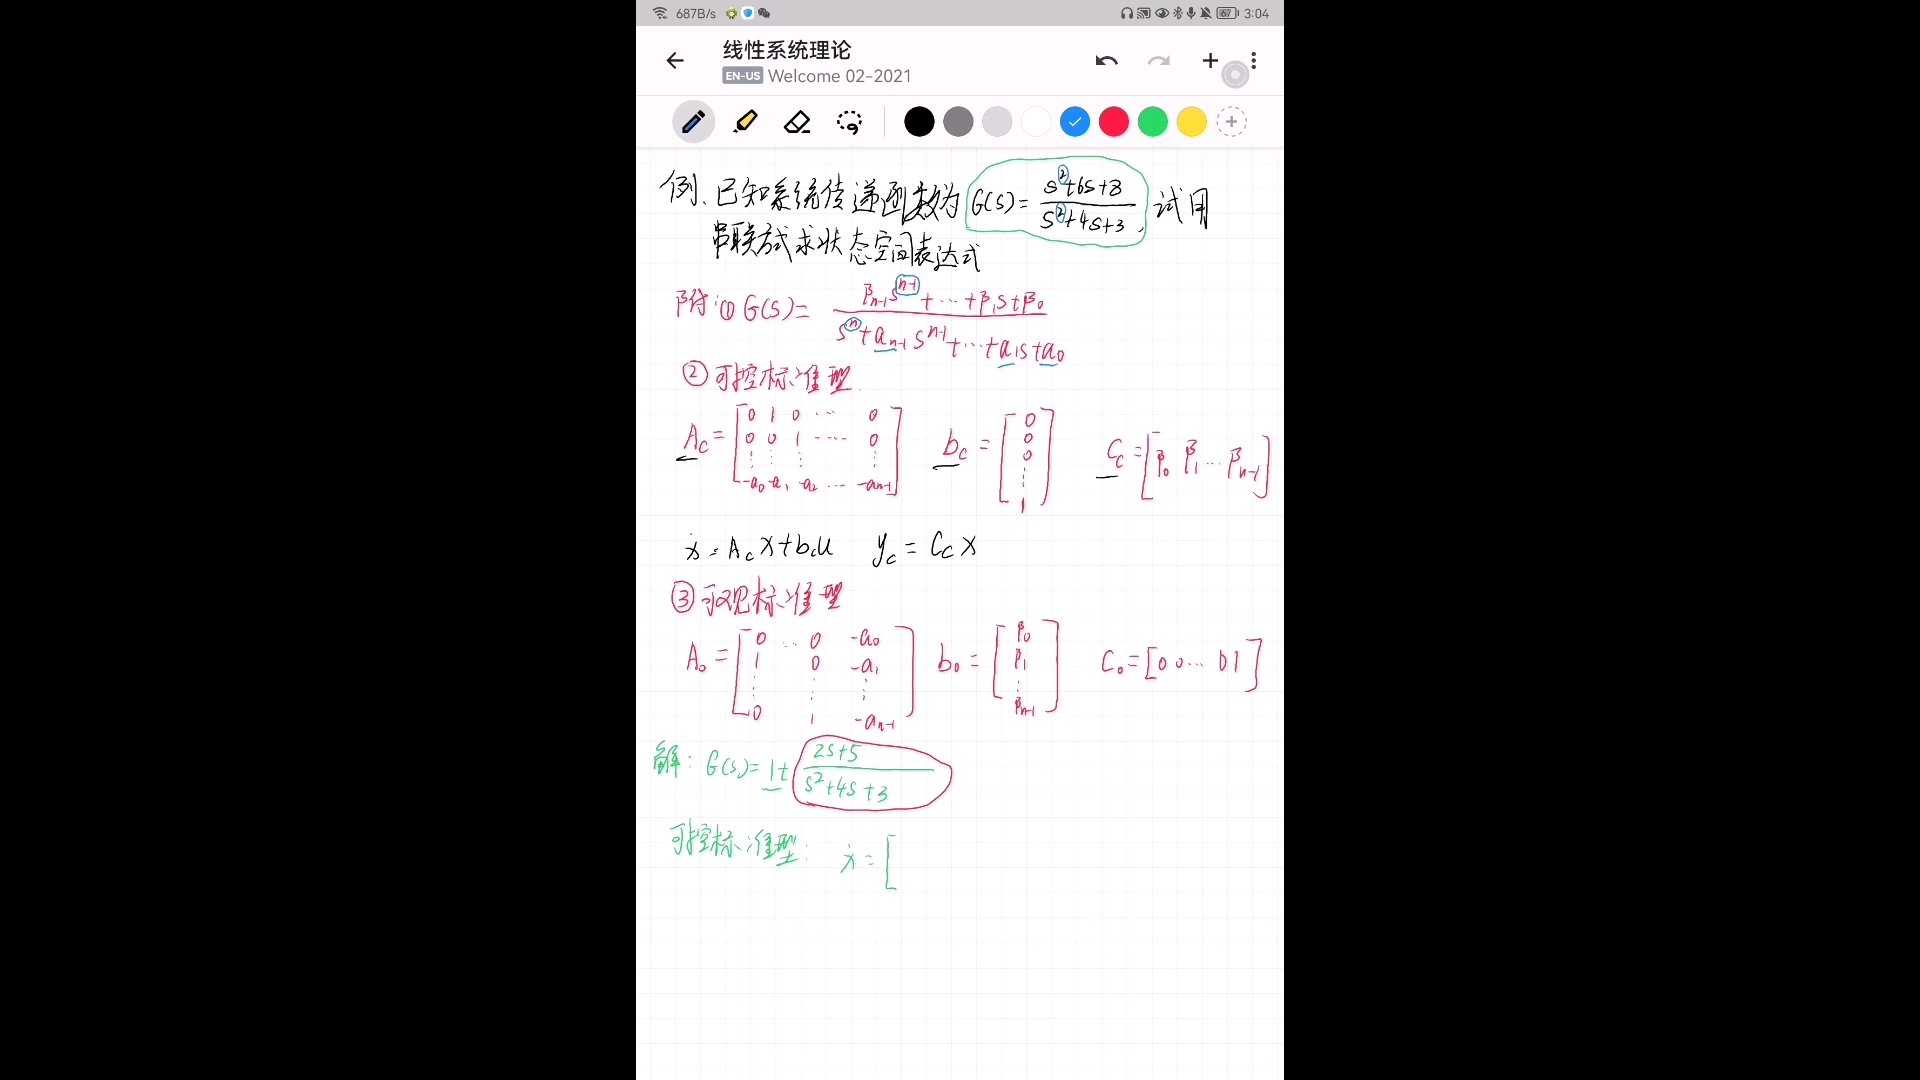 687B/s 67 3:04
线性系统理论
EN-US Welcome 02-2021
例、已知系统传递函数为 G(s)= (s²+6s+8)/(s²+4s+3), 试用
串联方式求状态空间表达式
附:① G(s)= (βn-1 s^n-1 + ··· + β1s+β0)/(s^n + an-1 s^n-1 + ··· + a1s + a0)
② 可控标准型
Ac = [0 1 0 ··· 0; 0 0 1 ···· 0; ⋮ ⋮ ⋮ ⋮; -a0 -a1 -a2 ··· -an-1] bc = [0 0 0 ⋮ 1] Cc = [β0 β1 ··· βn-1]
ẋ = Acx+bcu yc = Ccx
③ 可观标准型
A0 = [0 ·· 0 -a0; 1 0 -a1; ⋮ ⋮ ⋮; 0 1 -an-1] b0 = [β0 β1 ⋮ βn-1] C0 = [0 0 ··· 0 1]
解: G(s)= 1+ (2s+5)/(s²+4s+3)
可控标准型: ẋ = [